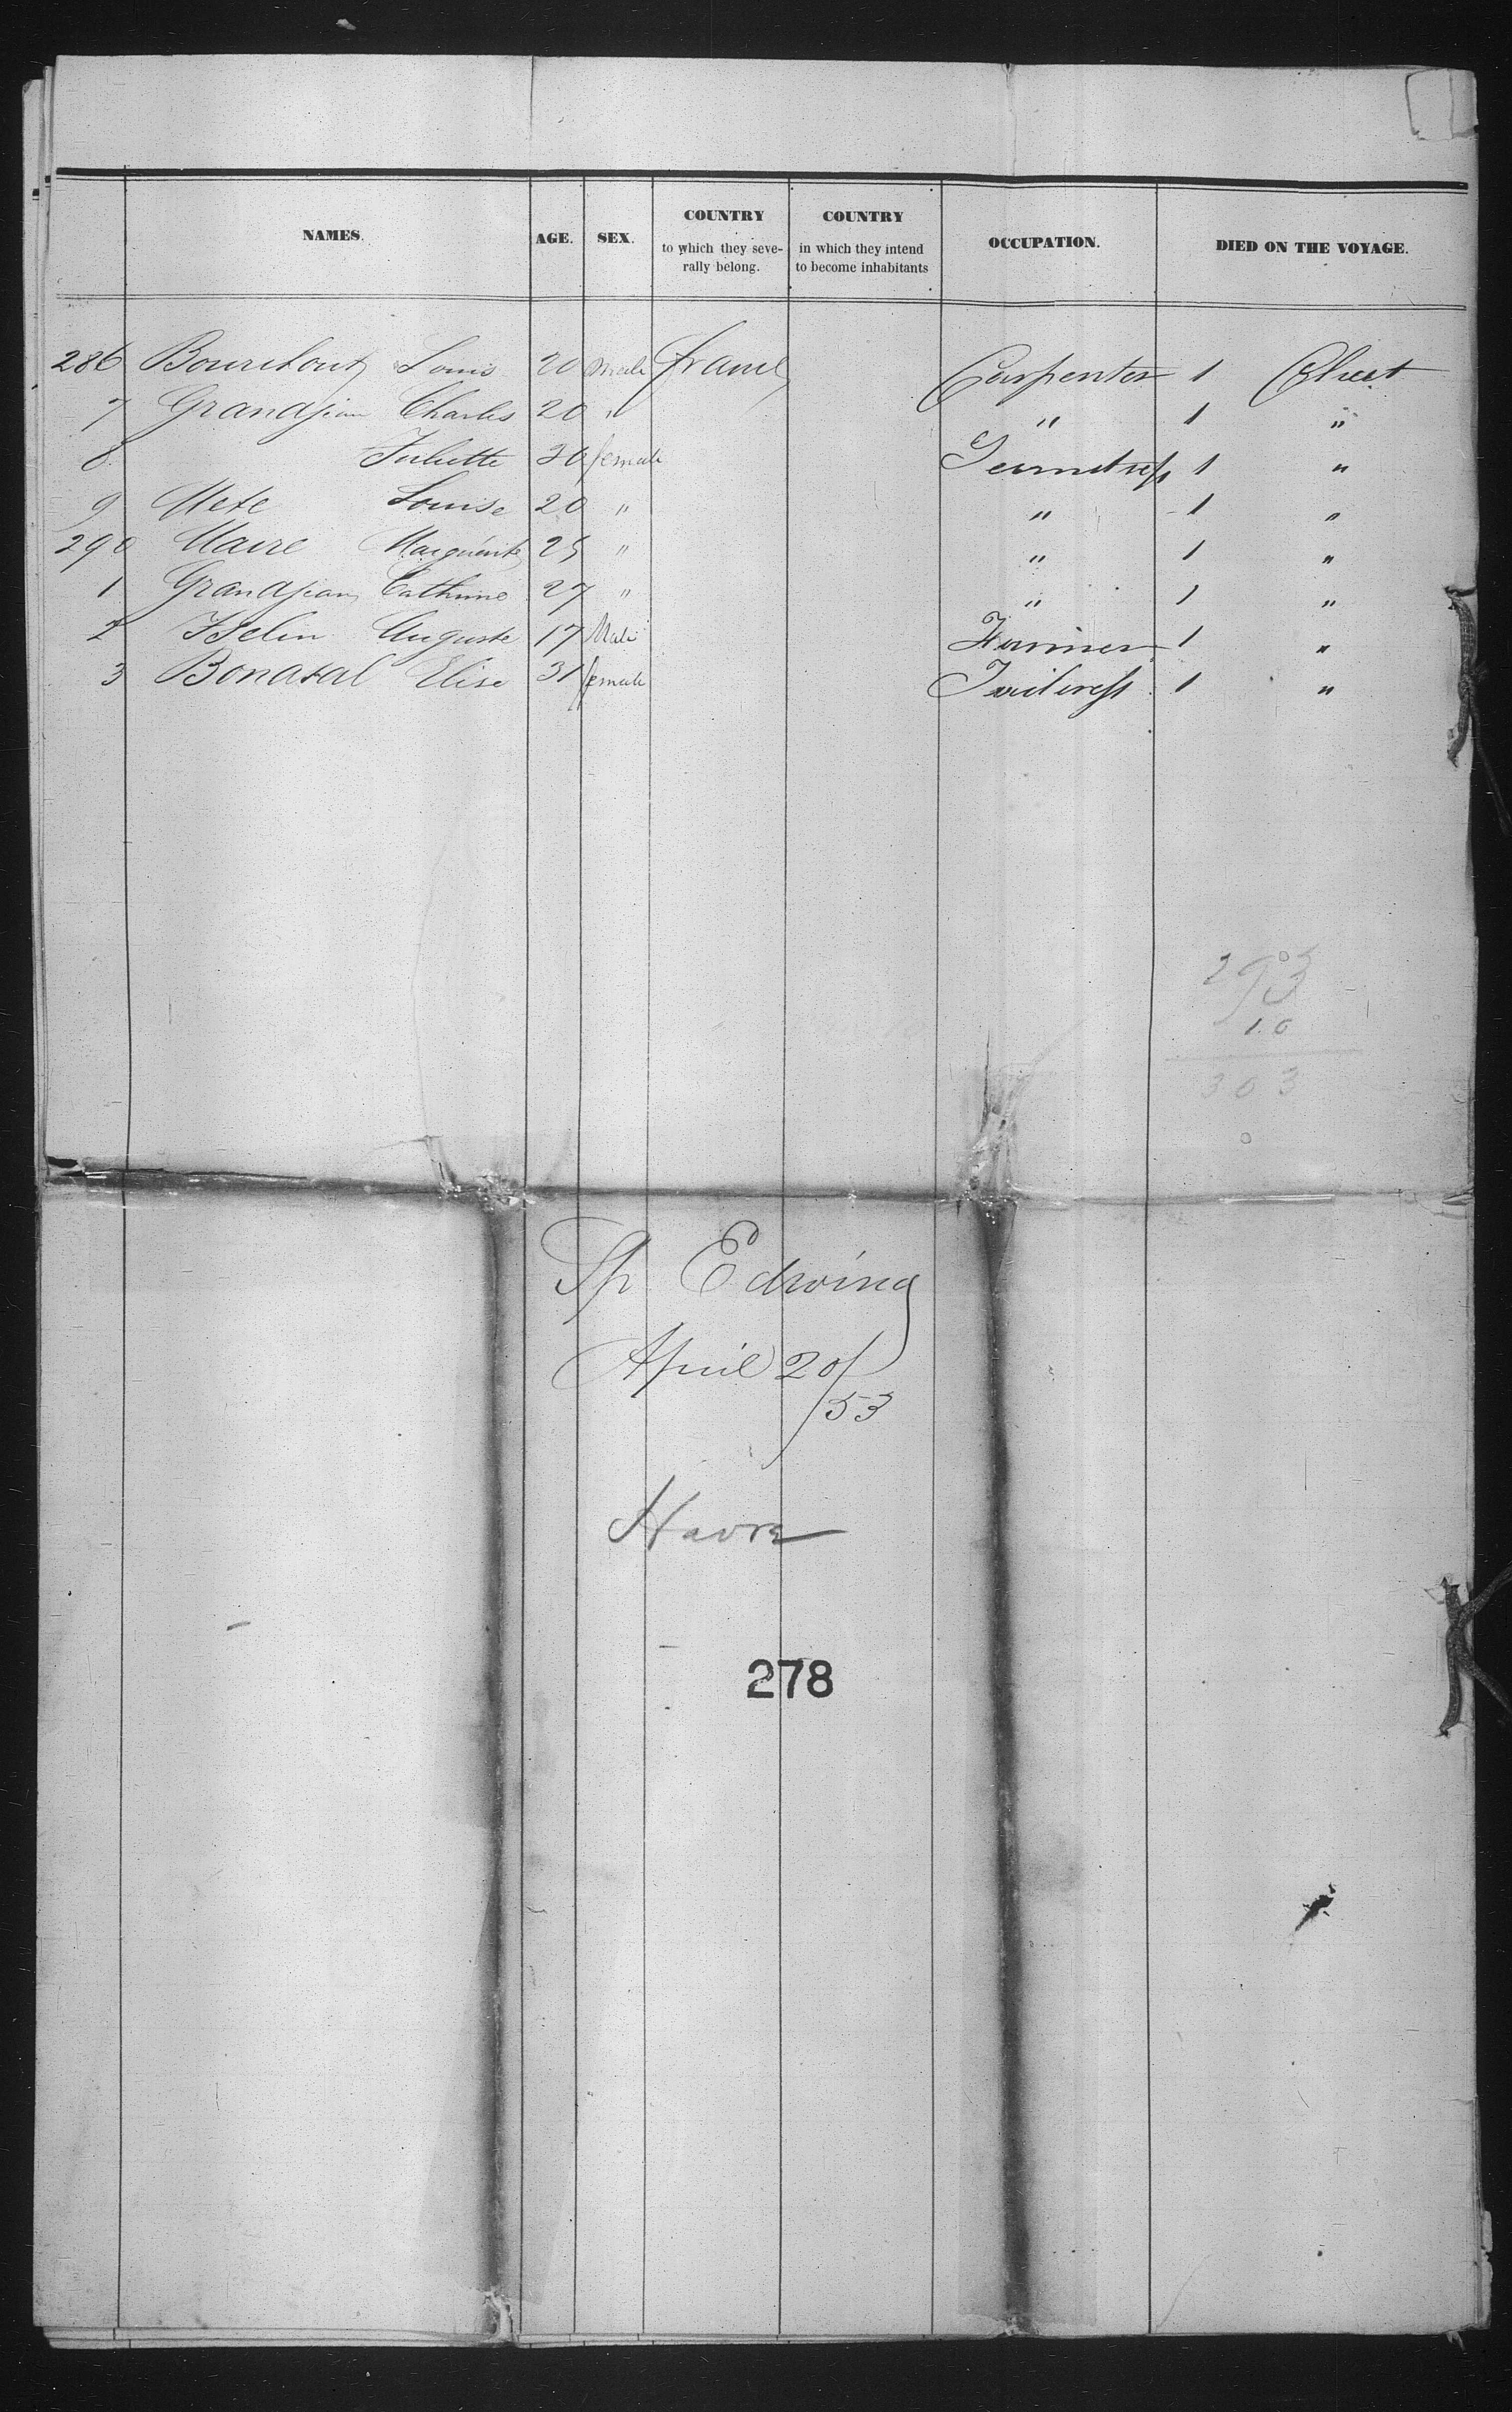 NAMES. AGE. SEX. COUNTRY to which they seve- rally belong. COUNTRY in which they intend to become inhabitants OCCUPATION. DIED ON THE VOYAGE.
286 Louis 20 male france Carpenter 1 Chest
7 Grandjean Charles 20 " " 1 "
8 Juliette 30 female Seamstress 1 "
9 Louise 20 " " 1 "
290 Maire Marguerite 25 " " 1 "
1 Grandjean Cathrine 27 " " 1 "
2 Iselin Auguste 17 Male Farmer 1 "
3 Elise 31 female Tailoress 1 "
293
10
303
Sp Edwina
April 20/
/53
Havre
278